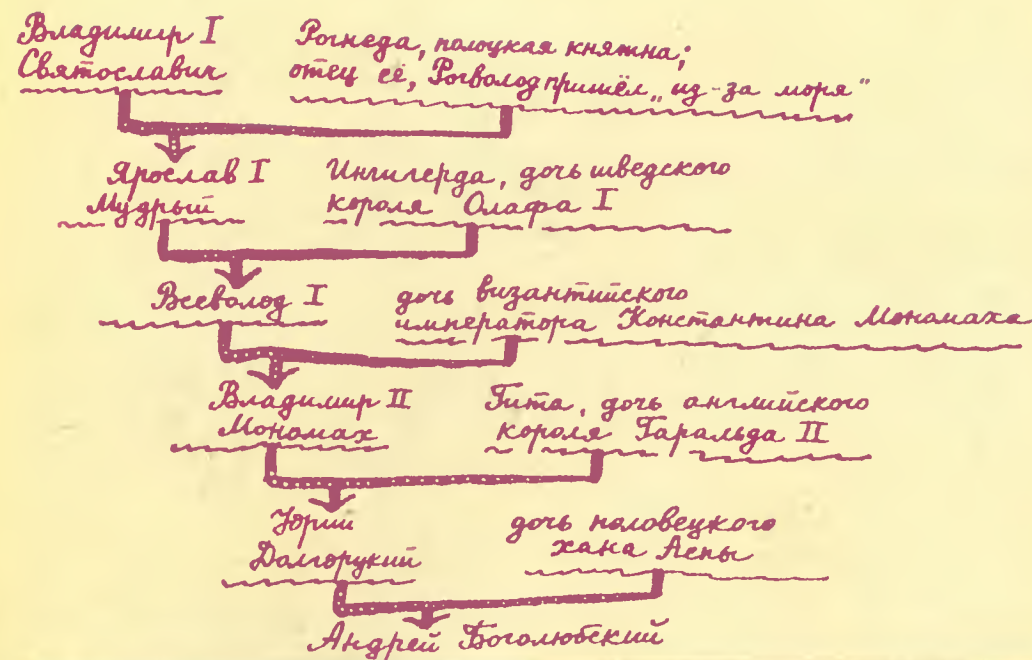 Владимир I
Святославич
Рогнеда, полоцкая княжна;
отец её, Рогволод пришёл „из-за моря"
Ярослав I
Мудрый
Ингигерда, дочь шведского
короля Олафа I
Всеволод I
дочь византийского
императора Константина Мономаха
Владимир II
Мономах
Гита, дочь английского
короля Гаральда II
Юрий
Долгорукий
дочь половецкого
хана Аепы
Андрей Боголюбский